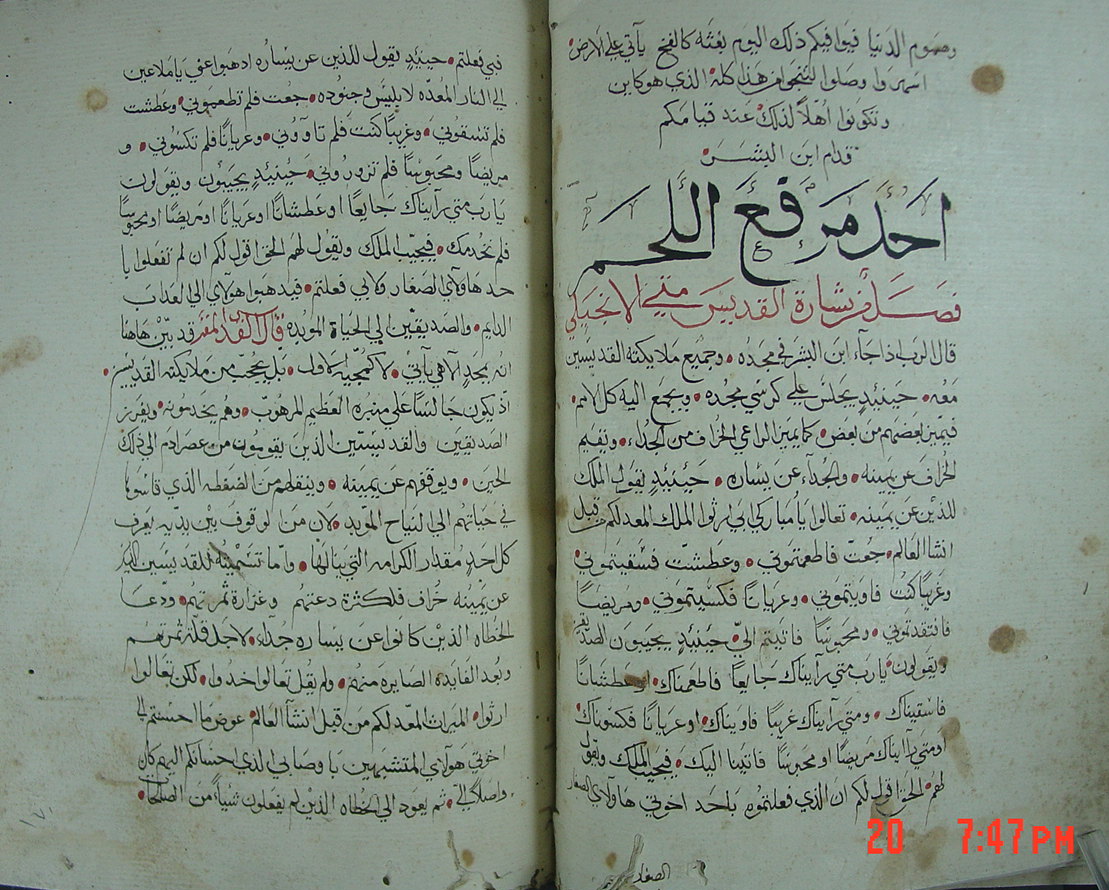 وهموم الدنيا فيوافيكم ذلك اليوم بغته كالفخ يأتي على الارض
اسهروا وصلوا لتنجوا من هذا كله الذي هو كاين
وتكونوا اهلاً لذلك عند قيامكم
قدام ابن البشر
احد مرفع اللحم
فصل من بشارة القديس متي الانجيلي
قال الرب اذا جآء ابن البشر في مجده وجميع ملايكته القديسين
معه حينيذٍ يجلس علي كرسي مجده ويجمع اليه كل الامم
فيميز بعضهم من بعض كما يميز الراعي الخراف من الجداء ويقيم
الخراف عن يمينه والجداء عن يساره حينيذٍ يقول الملك
للذين عن يمينه تعالوا يا مباركي ابي ارثوا الملك المعد لكم من قبل
انشا العالم جعت فاطعمتموني وعطشت فسقيتموني
وغريباً كنت فاويتموني وعرياناً فكسيتموني ومريضاً
فافتقدتموني ومحبوساً فاتيتم اليّ حينيذٍ يجيبون الصديقين
ويقولون يا رب متي رآيناك جايعاً فاطعمناك او عطشاناً
فاسقيناك ومتي رآيناك غريباً فاويناك او عرياناً فكسوناك
او متي رآيناك مريضاً او محبوساً فاتينا اليك فيجيب الملك ويقول
لهم الحق اقول لكم ان الذي فعلتموه باحد اخوتي هاولاي الصغار
الصغار
فبي فعلتم حينيذٍ يقول للذين عن يساره ادهبوا عني يا ملاعين
الي النار المعده لابليس وجنوده جعت فلم تطعموني وعطشت
فلم تسقوني وغريباً كنت فلم تاووني وعرياناً فلم تكسوني و
مريضاً ومحبوساً فلم تزوروني حينيذٍ يجيبون ويقولون
يا رب متي رآيناك جايعاً او عطشاناً او عرياناً او مريضاً او محبوساً
فلم نخدمك فيجيب الملك ويقول لهم الحق اقول لكم ان لم تفعلوا با
حد هاولآي الصغار ولا بي فعلتم فيدهبوا هولاي الي العداب
الدايم والصديقين الي الحياة الموبده قال المفسر قد بيّن هاهنا
انه بمجدٍ الاهي يآتي لا كمجيه الاول بل بعجب من ملايكته القديسين
اذ يكون جالساً علي منبره العظيم المرهوب وهم يخدمونه ويفرز
الصديقين والقديسين الذين يقومون من عصر ادم الي ذلك
الحين ويوقفهم عن يمينه وينقلهم من الضغطه الذي قاسوها
في حياتهم الي النياح الموبد لان من الوقوف بين يديه يعرف
كل احدٍ مقدار الكرامه التي ينالها واما تسميته للقديسين الذين
عن يمينه خراف فلكثرة دعتهم وغزارة ثمرتهم ودعا
الخطاه الذين كانوا عن يساره جداء لاجل قلة ثمرتهم
وبُعد الفايده الصايره منهم ولم يقل تعالوا خدوا لكن تعالوا
ارثوا الميرات المعد لكم من قبل انشآ العالم عوض ما احسنتم الي
اخوتي هولآي المتشبهين بي وصاياي الذي احسانكم اليهم كان
واصلاً الي ثم يعود الي الخطاه الذين لم يفعلون شياً من الصلاح
20 7:47 PM